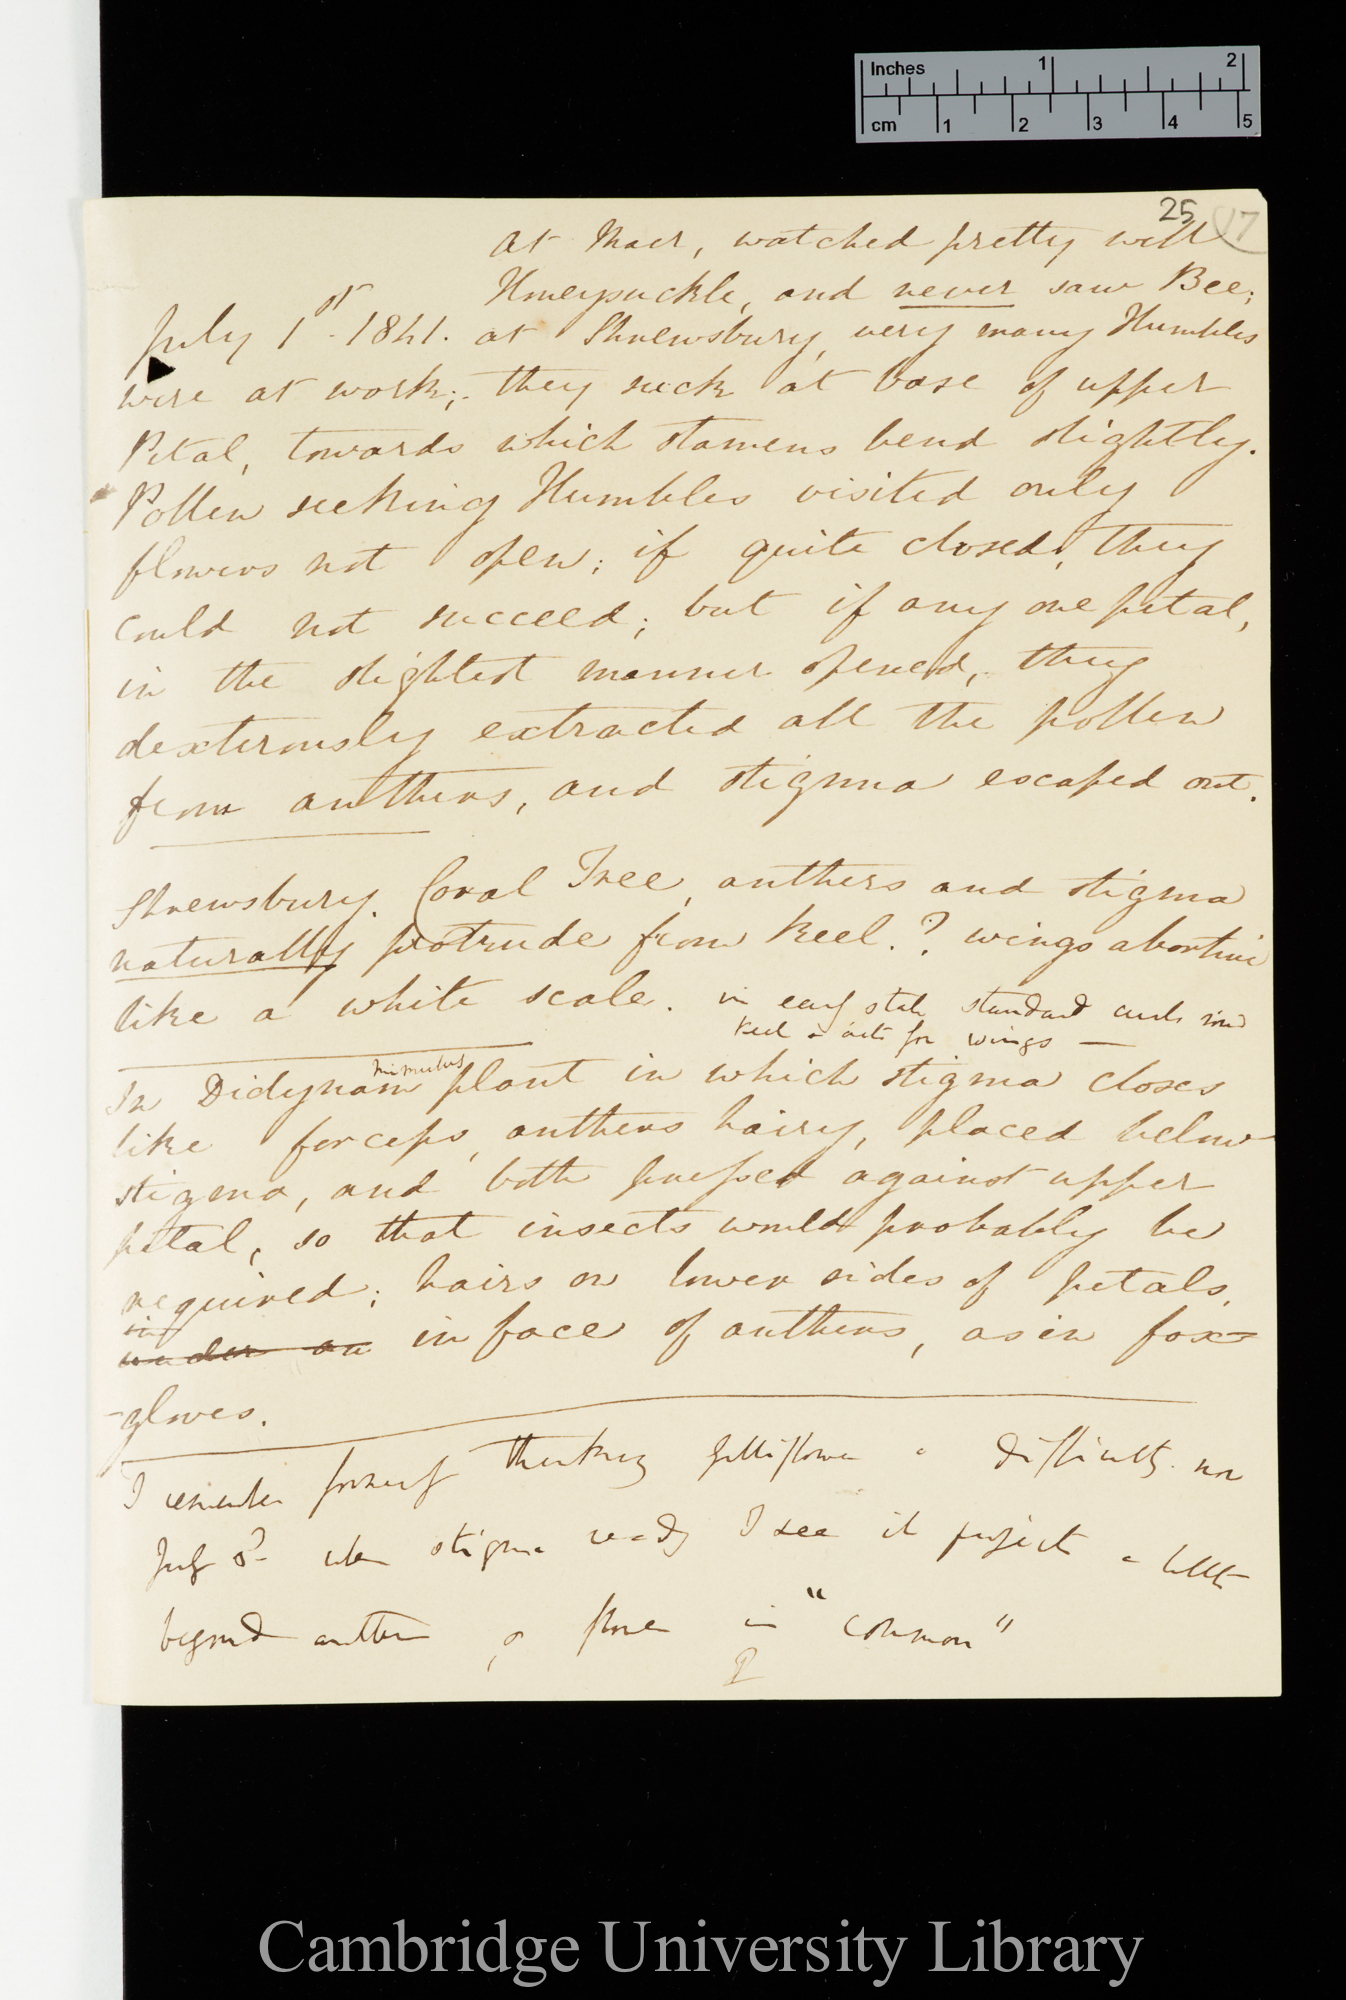 Inches 1 2
cm 1 2 3 4 5
25 17
At Maer, watched pretty well
Honeysuckle, and never saw Bee;
July 1st. 1841. at Shrewsbury, very many Humbles
were at work; they suck at base of upper
Petal, towards which stamens bend slightly.
Pollen seeking Humbles visited only
flowers not open; if quite closed, they
could not succeed; but if any one petal,
in the slightest manner opened, they
dexterously extracted all the pollen
from anthers, and stigma escaped out.
Shrewsbury. Coral Tree, anthers and stigma
naturally protrude from Keel. ? wings abortive
like a white scale. in early state standard curls round
Keel & acts for wings —
Mimulus
In Didynam plant in which stigma closes
like forceps, anthers hairy, placed below
stigma, and both pressed against upper
petal, so that insects would probably be
required; hairs on lower sides of petals,
under on in face of anthers, as in fox=
-gloves.
I remember formerly thinking Gilliflower a difficulty. now
July 8th when stigma ready I see it project a little
beyond anther & flower in "common"